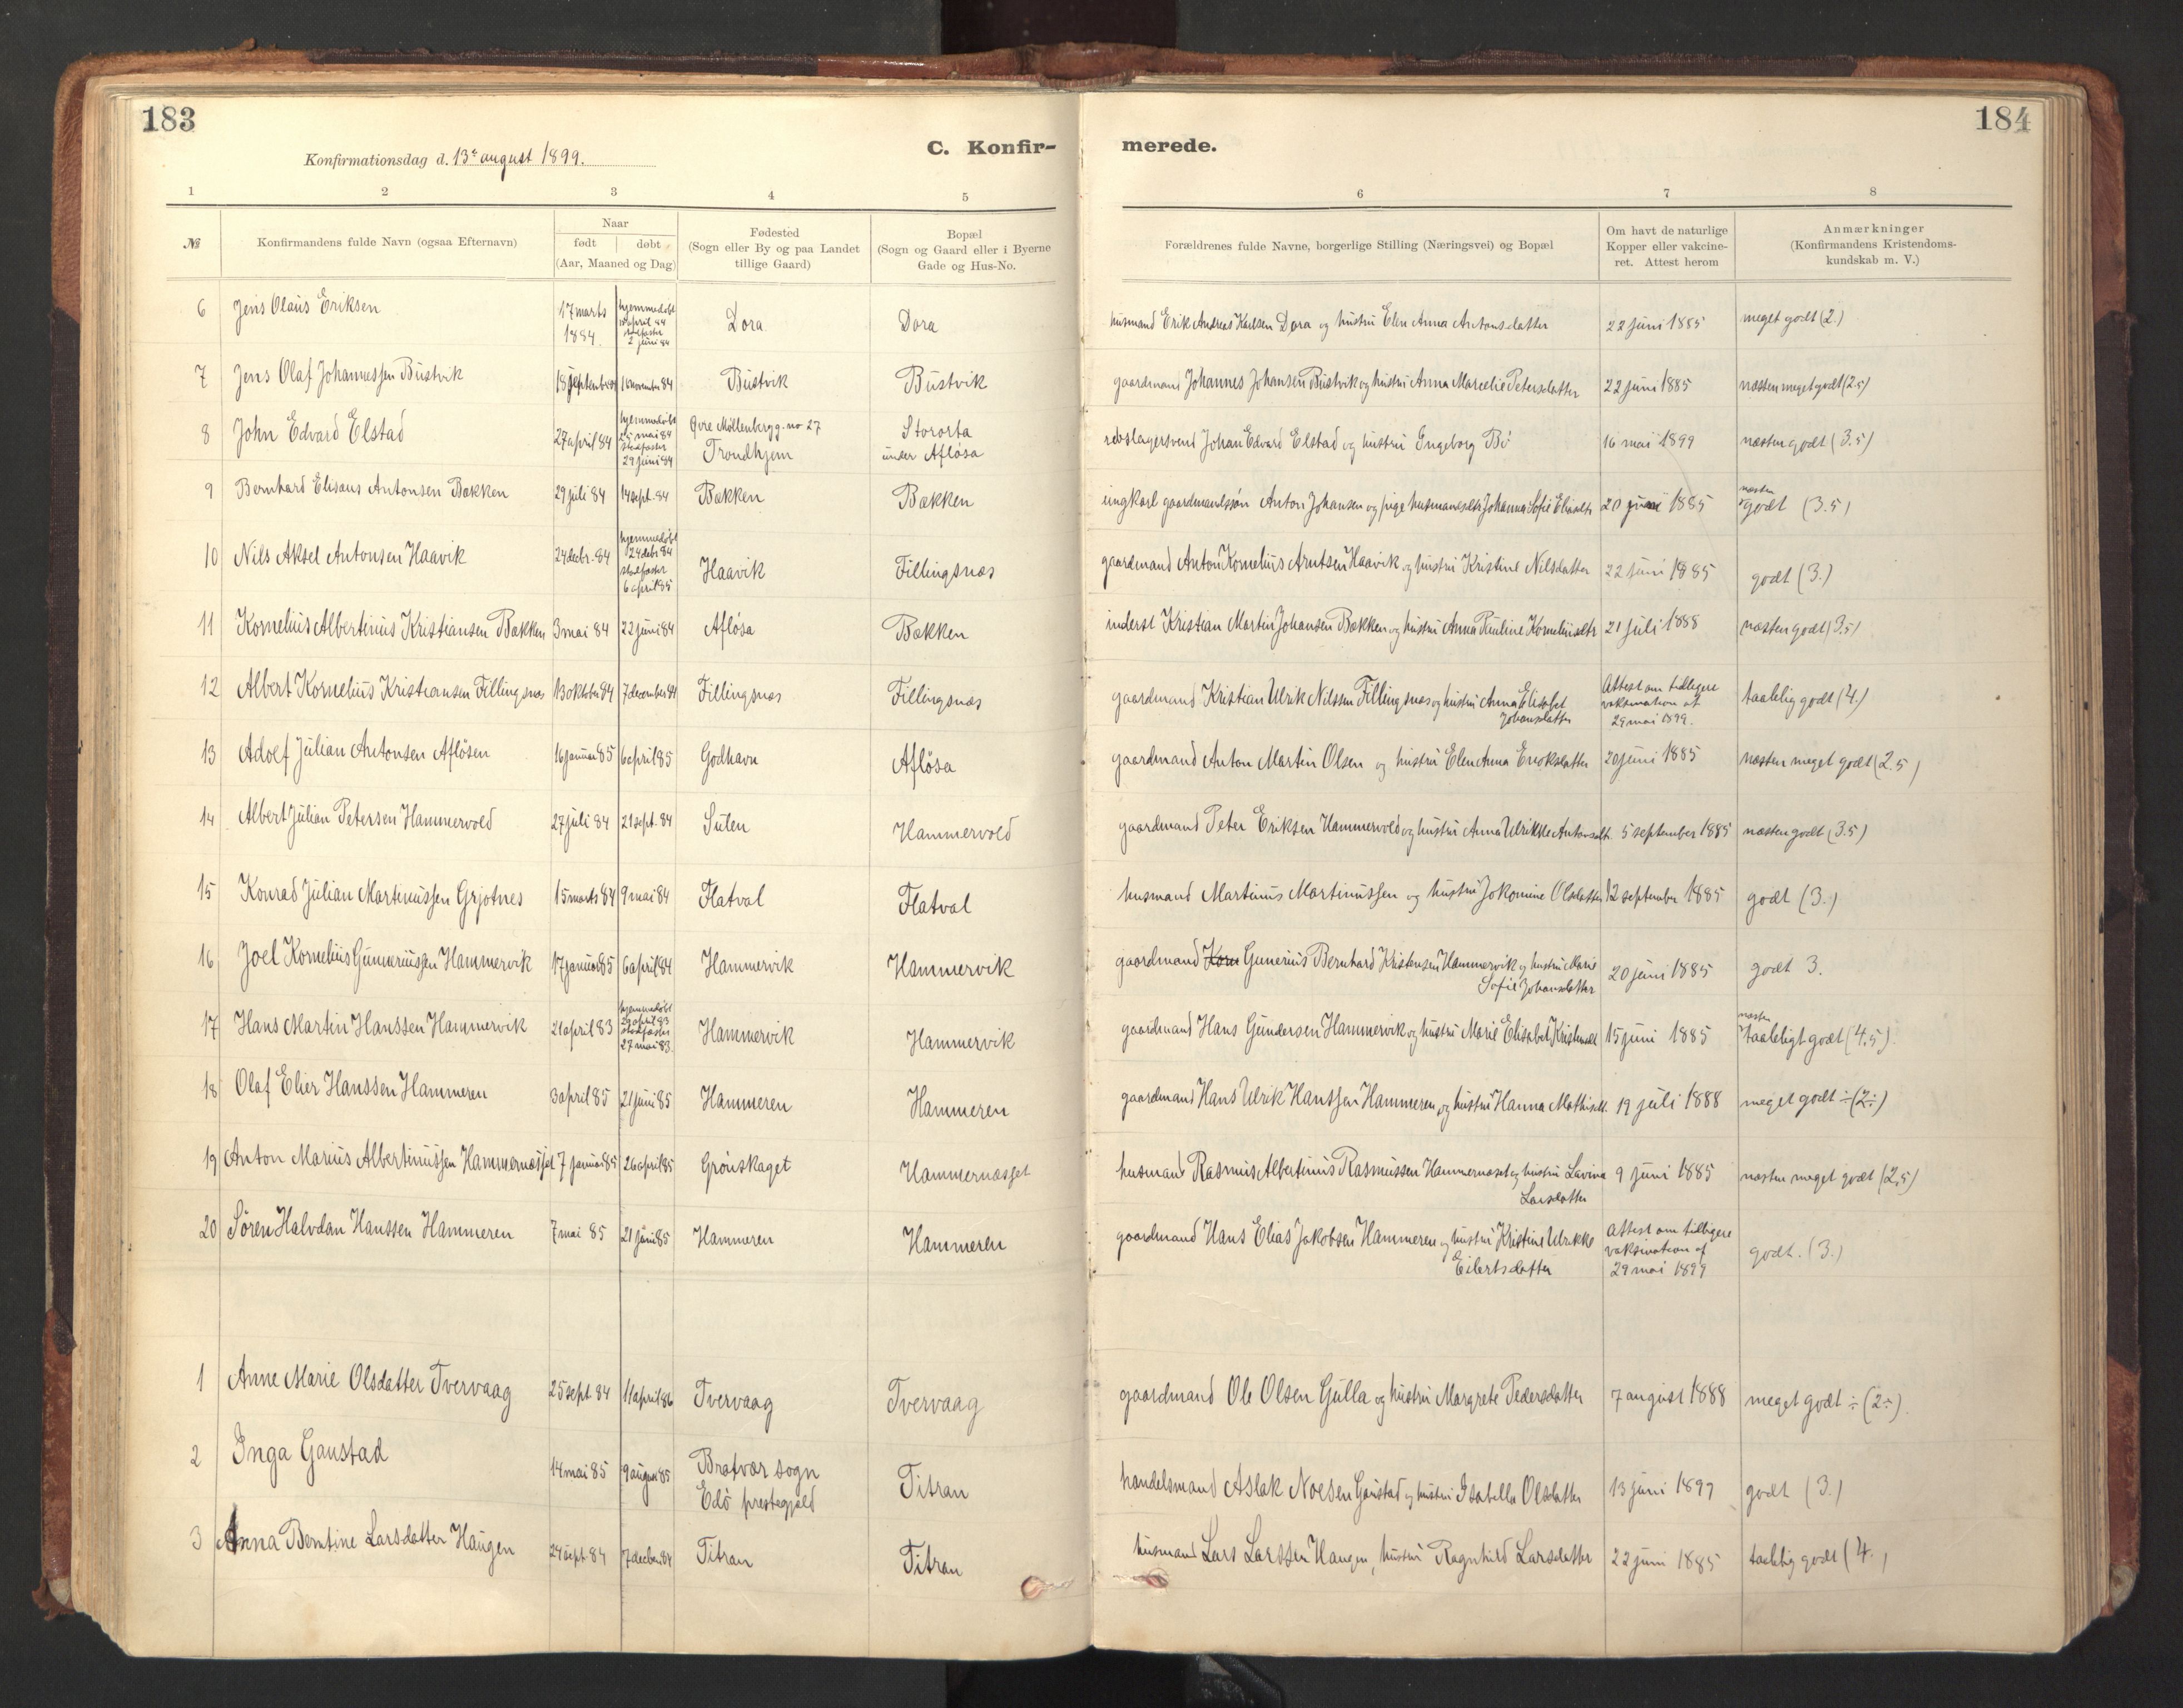 183
184
C. Konfir-
merede.
Konfirmationsdag d. 13de august 1899.
1 2 3 4 5 6 7 8
№ Konfirmandens fulde Navn (ogsaa Efternavn)
Naar
født døbt
(Aar, Maaned og Dag)
Fødested
(Sogn eller By og paa Landet
tillige Gaard)
Bopæl
(Sogn og Gaard eller i Byerne
Gade og Hus-No.
Forældrenes fulde Navne, borgerlige Stilling (Næringsvei) og Bopæl
Om havt de naturlige
Kopper eller vakcine-
ret. Attest herom
Anmærkninger
(Konfirmandens Kristendoms-
kundskab m. V.)
6 Jens Olaus Eriksen 17 marts 1884. hjemmedøbt april 84 stadfæstet 2 juni 84 Dora Dora husmand Erik Andreas Karlsen Dora og hustru Elen Anna Antonsdatter 22 juni 1885 meget godt (2.)
7 Jens Olaf Johannessen Bustvik 18 september 84 16 november 84 Bustvik Bustvik gaardmand Johannes Johansen Bustvik og hustru Anna Marcelie Petersdatter 22 juni 1885 næsten meget godt (2.5)
8 John Edvard Elstad 27 april 84 hjemmedøbt 25 mai 84 stadfæstet 29 juni 84 Øvre Møllenberg g. no 27 Trondhjem Stororta under Afløsa rebslagersvend Johan Edvard Elstad og hustru Ingeborg Bö 16 mai 1899 næsten godt (3.5)
9 Bernhard Elisæus Antonsen Bækken 29 juli 84 14 sept. 84 Bækken Bækken ungkarl gaardmandssøn Anton Johansen og pige husmandsdtr Johanna Sofie Eliasdtr 20 juni 1885 næsten godt (3.5)
10 Nils Aksel Antonsen Haavik 24 decbr. 84 hjemmedøbt 24 debr 84 stadfæstet 6 april 85 Haavik Fillingsnæs gaardmand Anton Kornelius Arntsen Haavik og hustru Kristine Nilsdatter 22 juni 1885 godt (3.)
11 Kornelius Albertinius Kristiansen Bækken 3 mai 84 22 juni 84 Afløsa Bækken inderst Kristian Martin Johansen Bækken og hustru Anna Pauline Korneliusdtr 21 juli 1888 næsten godt (3.5)
12 Albert Kornelius Kristiansen Fillingsnæs 13 oktober 84 7 december 84 Fillingsnæs Fillingsnæs gaardmand Kristian Ulrik Nilssen Fillingsnæs og hustru Anna Elisabet Johansdatter Attest om tidligere vaksination af 29 mai 1899. taalelig godt (4.)
13 Adolf Julian Antonsen Afløsen 16 januar 85 6 april 85 Godhavn Afløsa gaardmand Anton Martin Olsen og hustru Elen Anna Enoksdatter 20 juni 1885 næsten meget godt (2.5)
14 Albert Julian Petersen Hammervold 27 juli 84 21 sept. 84 Sulen Hammervold gaardmand Peter Eriksen Hammervold og hustru Anna Ulrikke Antonsdtr. 5 september 1885 næsten godt (3.5)
15 Konrad Julian Martinussen Grjotnes 15 marts 84 9 mai 84 Flatval Flatval husmand Martinus Martinussen og hustru Jokomine Olsdatter 12 september 1885 godt (3.)
16 Joel Kornelius Gunneriussen Hammervik 17 januar 85 6 april 84 Hammervik Hammervik gaardmand Korn Gunerius Bernhard Kristensen Hammervik og hustru Marie Sofie Johansdatter 20 juni 1885 godt 3.
17 Hans Martin Hanssen Hammervik 21 april 83 hjemmedøbt 29 april 83 stadfæstet 27 mai 83. Hammervik Hammervik gaardmand Hans Gundersen Hammervik og hustru Marie Elisabet 15 juni 1885 næsten taaleligt godt (4.5).
18 Olaf Elier Hanssen Hammeren 3 april 85 21 juni 85 Hammeren Hammeren gaardmand Hans Ulrik Hanssen Hammeren og hustru Hanna Mathisd. 19 juli 1888 meget godt ÷ (2÷)
19 Anton Marius Albertinussen Hammernæsset 7 januar 85 26 april 85 Grönskaget Hammernæsset husmand Rasmus Albertinus Rasmussen Hammernæset og hustru Lavina Larsdatter 9 juni 1885 næsten meget godt (2,5)
20 Sören Halvdan Hanssen Hammeren 7 mai 85 21 juni 85 Hammeren Hammeren gaardmand Hans Elias Jakobsen Hammeren og hustru Kristine Ulrikke Eilertsdatter Attest om tidligere vaksination af 29 mai 1899 godt. (3.)
1 Anne Marie Olsdatter Tvervaag 25 sept 84 11 april 86 Tvervaag Tvervaag gaardmand Ole Olsen Gulla og hustru Margrete Pedersdatter 7 august 1888 meget godt ÷ (2÷).
2 Inga Gaustad 14 mai 85 9 august 85 Bratvær sogn Edö prestegjeld Titran handelsmand Aslak Noesen Gaustad og hustru Isabella Olsdatter 13 juni 1899 godt (3.)
3 Anna Berntine Larsdatter Haugen 24 sept. 84 7 decbr 84 Titran Titran husmand Lars Larssen Haugen, hustru Ragnhild Larsdatter 22 juni 1885 taalelig godt (4.)